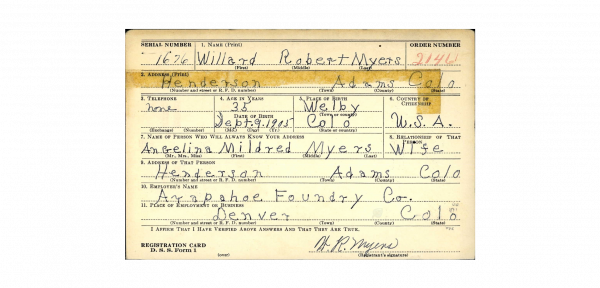 SERIAL NUMBER 1. NAME (Print) ORDER NUMBER
1676 Willard Robert Myers
(First) (Middle) (Last)
2. ADDRESS (Print)
Henderson Adams Colo
(Number and street or R. F. D. number) (Town) (County) (State)
3. TELEPHONE 4. AGE IN YEARS 5. PLACE OF BIRTH 6. COUNTRY OF CITIZENSHIP
none 35 Welby
DATE OF BIRTH (Town or county)
Sept. 9, 1905 Colo U.S.A.
(Exchange) (Number) (Mo.) (Day) (Yr.) (State or country)
7. NAME OF PERSON WHO WILL ALWAYS KNOW YOUR ADDRESS 8. RELATIONSHIP OF THAT PERSON
Angelina Mildred Myers Wife
(Mr., Mrs., Miss) (First) (Middle) (Last)
9. ADDRESS OF THAT PERSON
Henderson Adams Colo
(Number and street or R. F. D. number) (Town) (County) (State)
10. EMPLOYER'S NAME
Arapahoe Foundry Co.
11. PLACE OF EMPLOYMENT OR BUSINESS
Denver Colo
(Number and street or R. F. D. number) (Town) (County) (State)
I AFFIRM THAT I HAVE VERIFIED ABOVE ANSWERS AND THAT THEY ARE TRUE.
W. R. Myers
REGISTRATION CARD
D. S. S. Form 1 (over) (Registrant's signature)